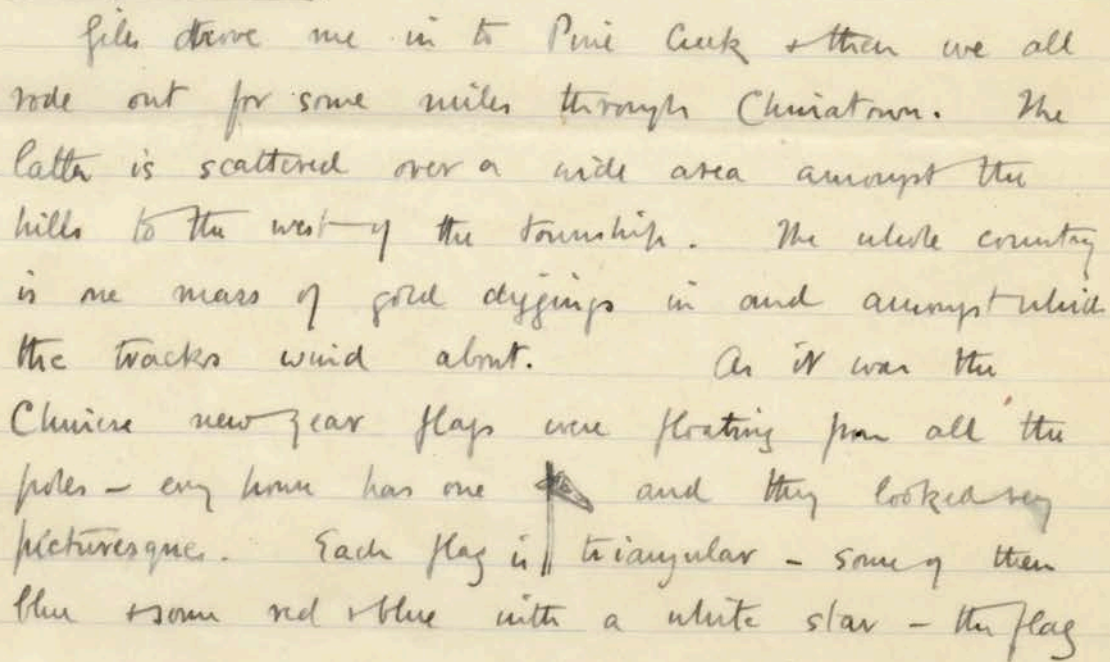 Giles drove me in to Pine Creek & then we all
rode out for some miles through Chinatown. The
latter is scattered over a wide area amongst the
hills to the west of the township. The whole country
is one mass of gold diggings in and amongst which
the tracks wind about. As it was the
Chinese new year flags were floating from all the
poles – every house has one and they looked very
picturesque. Each flag is triangular – some of them
blue & some red & blue with a white star – the flag